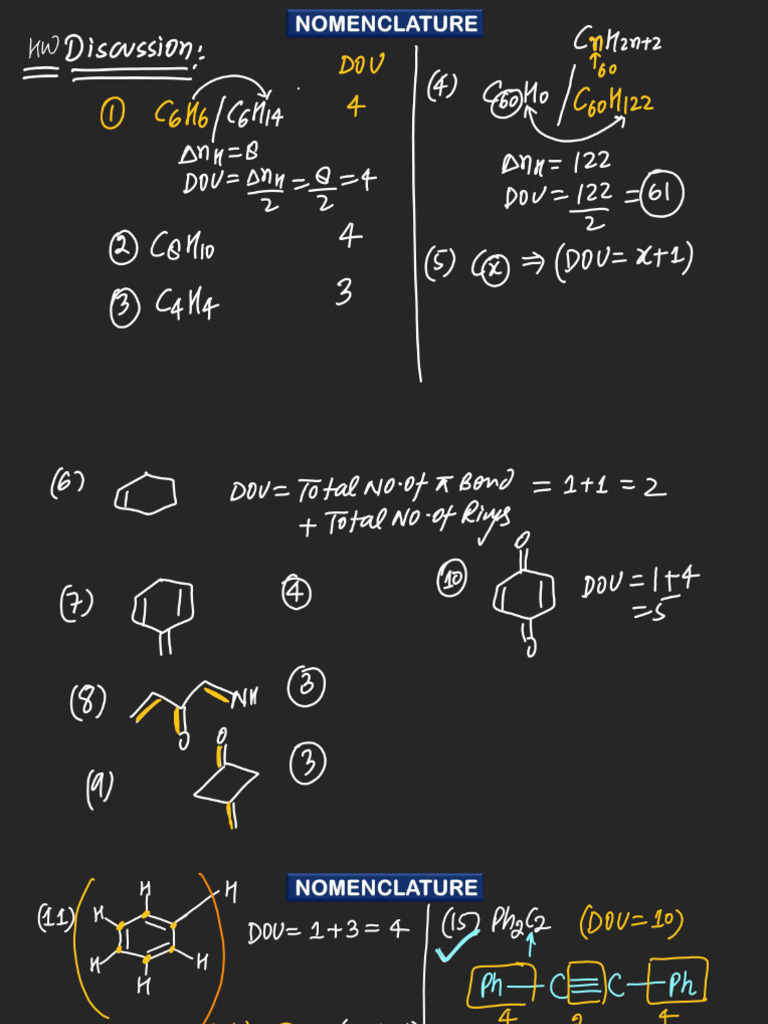 NOMENCLATURE
HW Discussion:
DOU
① C6H6/C6H14 4
ΔnH = 8
DOU = ΔnH/2 = 8/2 = 4
② C8H10 4
③ C4H4 3
CnH2n+2
↑60
(4) C60H0 / C60H122
ΔnH = 122
DOU = 122/2 = 61
(5) Cx ⇒ (DOU = x+1)
(6) DOU = Total No. of π Bond + Total No. of Rings = 1+1 = 2
(7) ④
(8) NH O ③
(9) O ③
⑩ O O DOU = 1+4
=5
NOMENCLATURE
(11) H H H H H H DOU = 1+3 = 4
(15) Ph2C2 (DOU=10)
Ph—C≡C—Ph
4 2 4